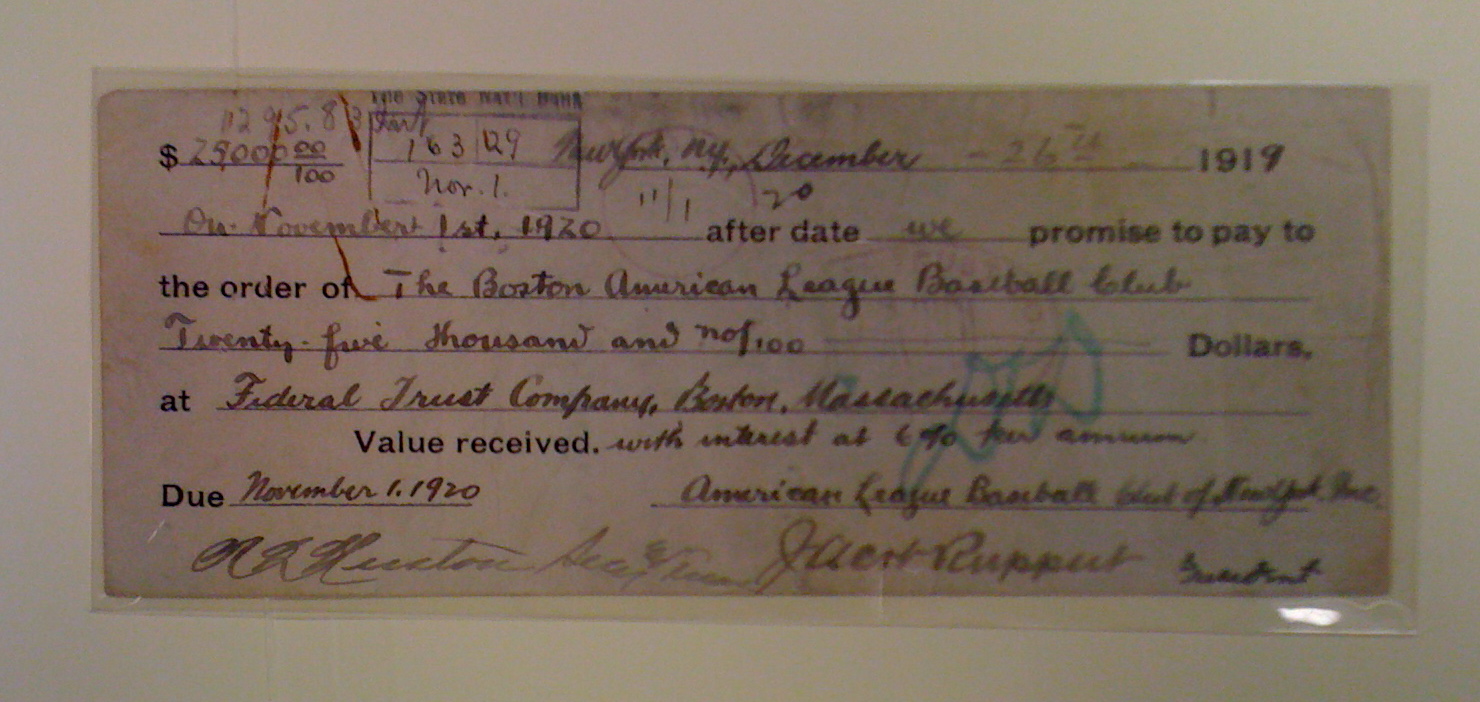 The State Nat'l Bank
1295.83
$ 25000 00/100
163129
Nov. 1.
New York, N.Y., December - 26th 1919
11/1 20
On November 1st, 1920 after date we promise to pay to
the order of The Boston American League Baseball Club
Twenty-five thousand and no/100 Dollars,
at Federal Trust Company, Boston, Massachusetts
Value received. with interest at 6% per annum
Due November 1. 1920 American League Baseball Club of New York, Inc.
Huston Sec & Treas Jacob Ruppert President